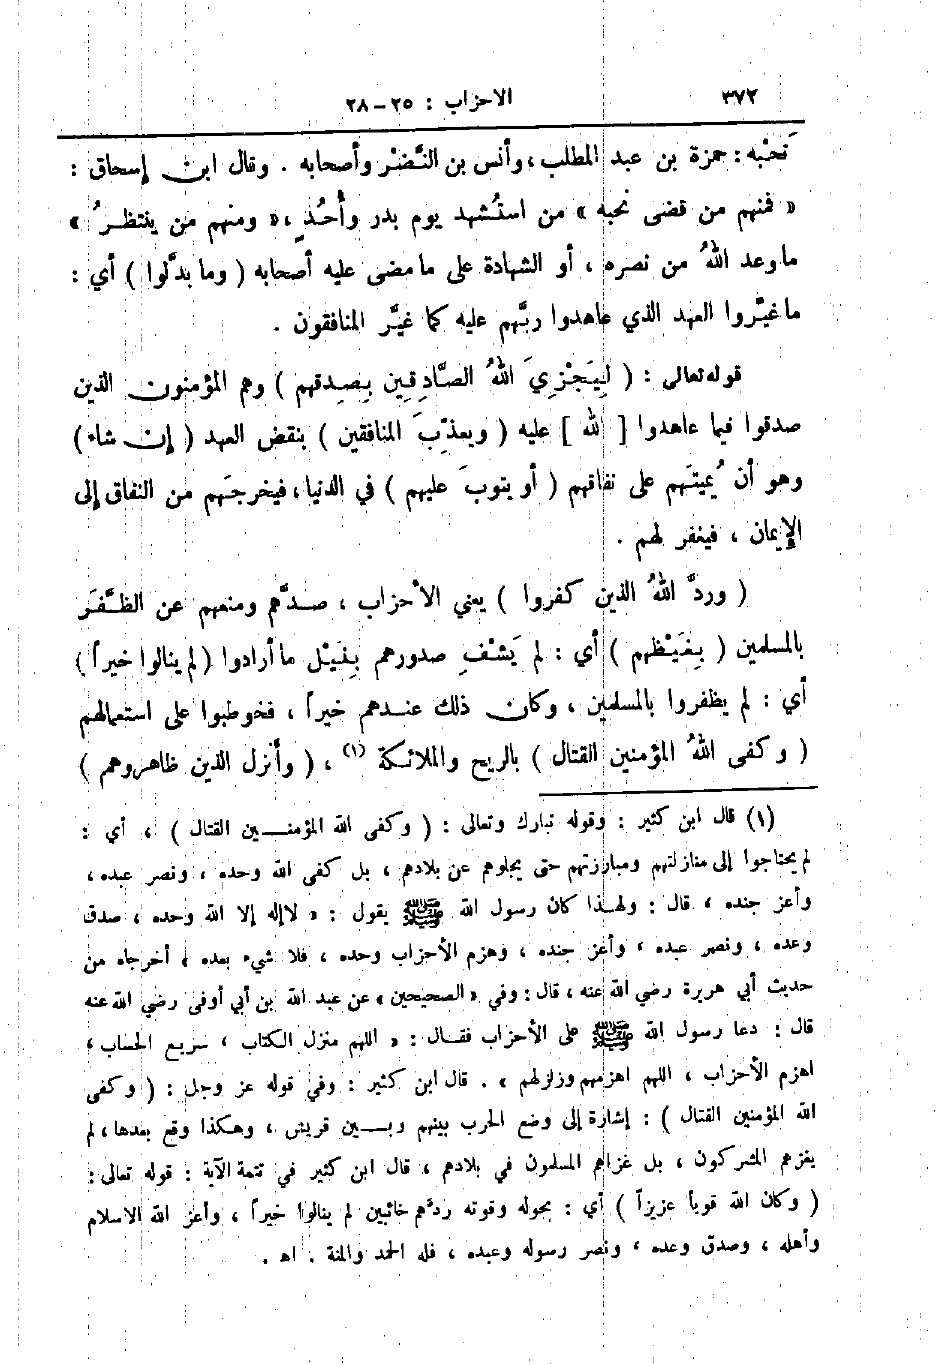 ٣٧٢
الاحزاب : ٢٥ – ٢٨
نَحْبه : حمزة بن عبد المطلب ، وأنس بن النَّضْر وأصحابه . وقال ابن إسحاق :
« فمنهم من قضى نحبه » من استُشهد يوم بدر وأُحُدٍ ، « ومنهم من ينتظرُ »
ما وعد اللهُ من نصره ، أو الشهادة على ما مضى عليه أصحابه ( وما بدَّلوا ) أي :
ما غيَّروا العهد الذي عاهدوا ربَّهم عليه كما غيَّر المنافقون .
قوله تعالى : ( لِيَجْزِيَ اللهُ الصَّادِقِين بِصِدقهم ) وهم المؤمنون الذين
صدقوا فيما عاهدوا [ لله ] عليه ( ويعذِّبَ المنافقين ) بنقض العهد ( إن شاء )
وهو أن يُميتَهم على نفاقهم ( أو يتوبَ عليهم ) في الدنيا ، فيخرجَهم من النفاق إلى
الإيمان ، فيغفر لهم .
( وردَّ اللهُ الذين كفروا ) يعني الأحزاب ، صدَّهم ومنعهم عن الظَّفَر
بالمسلمين ( بِغَيْظهم ) أي : لم يَشْفِ صدورهم بِنَيْل ما أرادوا ( لم ينالوا خيراً )
أي : لم يظفروا بالمسلمين ، وكان ذلك عندهم خيراً ، فخوطبوا على استعمالهم
( وكفى اللهُ المؤمنين القتال ) بالريح والملائكة (١) ، ( وأَنزل الذين ظاهروهم )
(١) قال ابن كثير : وقوله تبارك وتعالى : ( وكفى الله المؤمنين القتال ) ، أي :
لم يحتاجوا إلى منازلتهم ومبارزتهم حتى يجلوهم عن بلادهم ، بل كفى الله وحده ، ونصر عبده ،
وأعز جنده ، قال : ولهذا كان رسول الله ﷺ يقول : « لا إله إلا الله وحده ، صدق
وعده ، ونصر عبده ، وأعز جنده ، وهزم الأحزاب وحده ، فلا شيء بعده » أخرجاه من
حديث أبي هريرة رضي الله عنه ، قال : وفي « الصحيحين » عن عبد الله بن أبي أوفى رضي الله عنه
قال : دعا رسول الله ﷺ على الأحزاب فقال : « اللهم منزل الكتاب ، سريع الحساب ،
اهزم الأحزاب ، اللهم اهزمهم وزلزلهم » . قال ابن كثير : وفي قوله عز وجل : ( وكفى
الله المؤمنين القتال ) : إشارة إلى وضع الحرب بينهم وبين قريش ، وهكذا وقع بعدها ، لم
يغزهم المشركون ، بل غزاهم المسلمون في بلادهم ، قال ابن كثير في تتمة الآية : قوله تعالى :
( وكان الله قوياً عزيزاً ) أي : بحوله وقوته ردَّهم خائبين لم ينالوا خيراً ، وأعز الله الاسلام
وأهله ، وصدق وعده ، ونصر رسوله وعبده ، فله الحمد والمنة . اه .